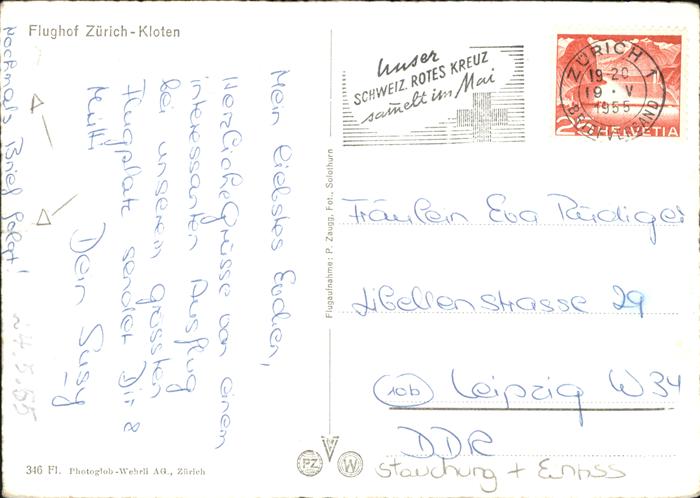 Flughof Zürich-Kloten
Unser
SCHWEIZ. ROTES KREUZ
sammelt im Mai
ZÜRICH 1
19-20
19 · V
1955
BRIEFVERSAND
HELVETIA
Mein liebstes Evchen,
Herzliche Grüsse von einem
interessanten Ausflug
bei unserem grössten
Flugplatz sendet Dir &
Mutti
Dein Susy
Nochmals Brief folgt!
24.5.55
Flugaufnahme: P. Zaugg, Fot., Solothurn
Fräulein Eva Rüdiger
Libellenstrasse 29
10b Leipzig W 34
DDR
Stauchung + Einriss
346 Fl. Photoglob-Wehrli AG., Zürich
PZ W